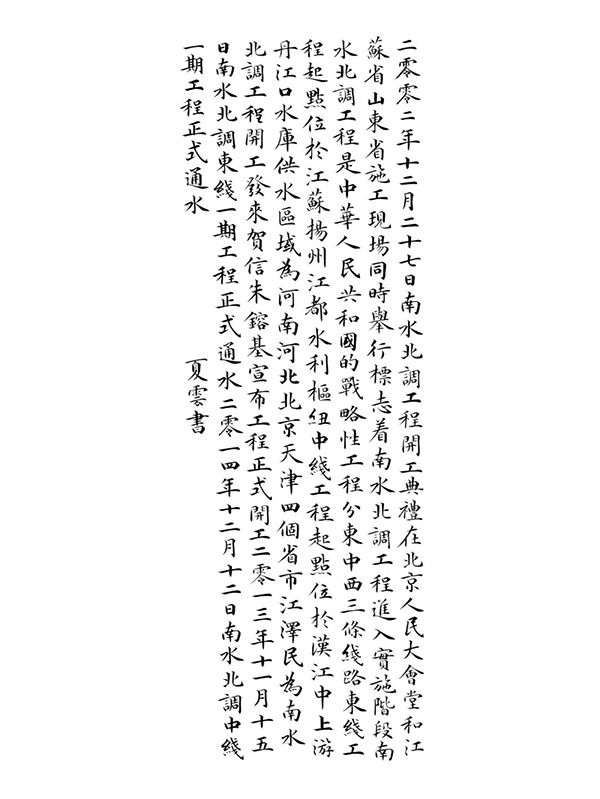 二零零二年十二月二十七日南水北調工程開工典禮在北京人民大會堂和江
蘇省山東省施工現場同時舉行標志着南水北調工程進入實施階段南
水北調工程是中華人民共和國的戰略性工程分東中西三條綫路東綫工
程起點位於江蘇揚州江都水利樞紐中綫工程起點位於漢江中上游
丹江口水庫供水區域為河南河北北京天津四個省市江澤民為南水
北調工程開工發來賀信朱鎔基宣布工程正式開工二零一三年十一月十五
日南水北調東綫一期工程正式通水二零一四年十二月十二日南水北調中綫
一期工程正式通水
夏雲書